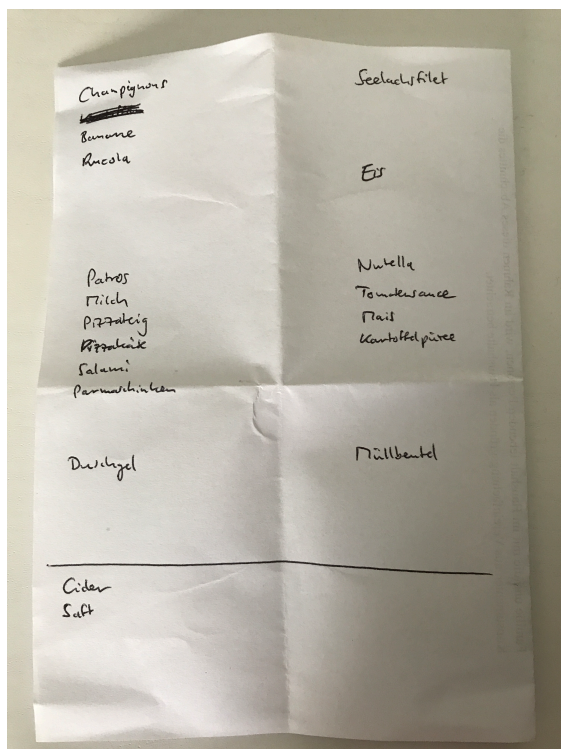 Champignons
Banane
Rucola
Patros
Milch
Pizzateig
Pizzakäse
Salami
Parmaschinken
Duschgel
Seelachsfilet
Eis
Nutella
Tomatensauce
Mais
Kartoffelpüree
Müllbeutel
Cider
Saft